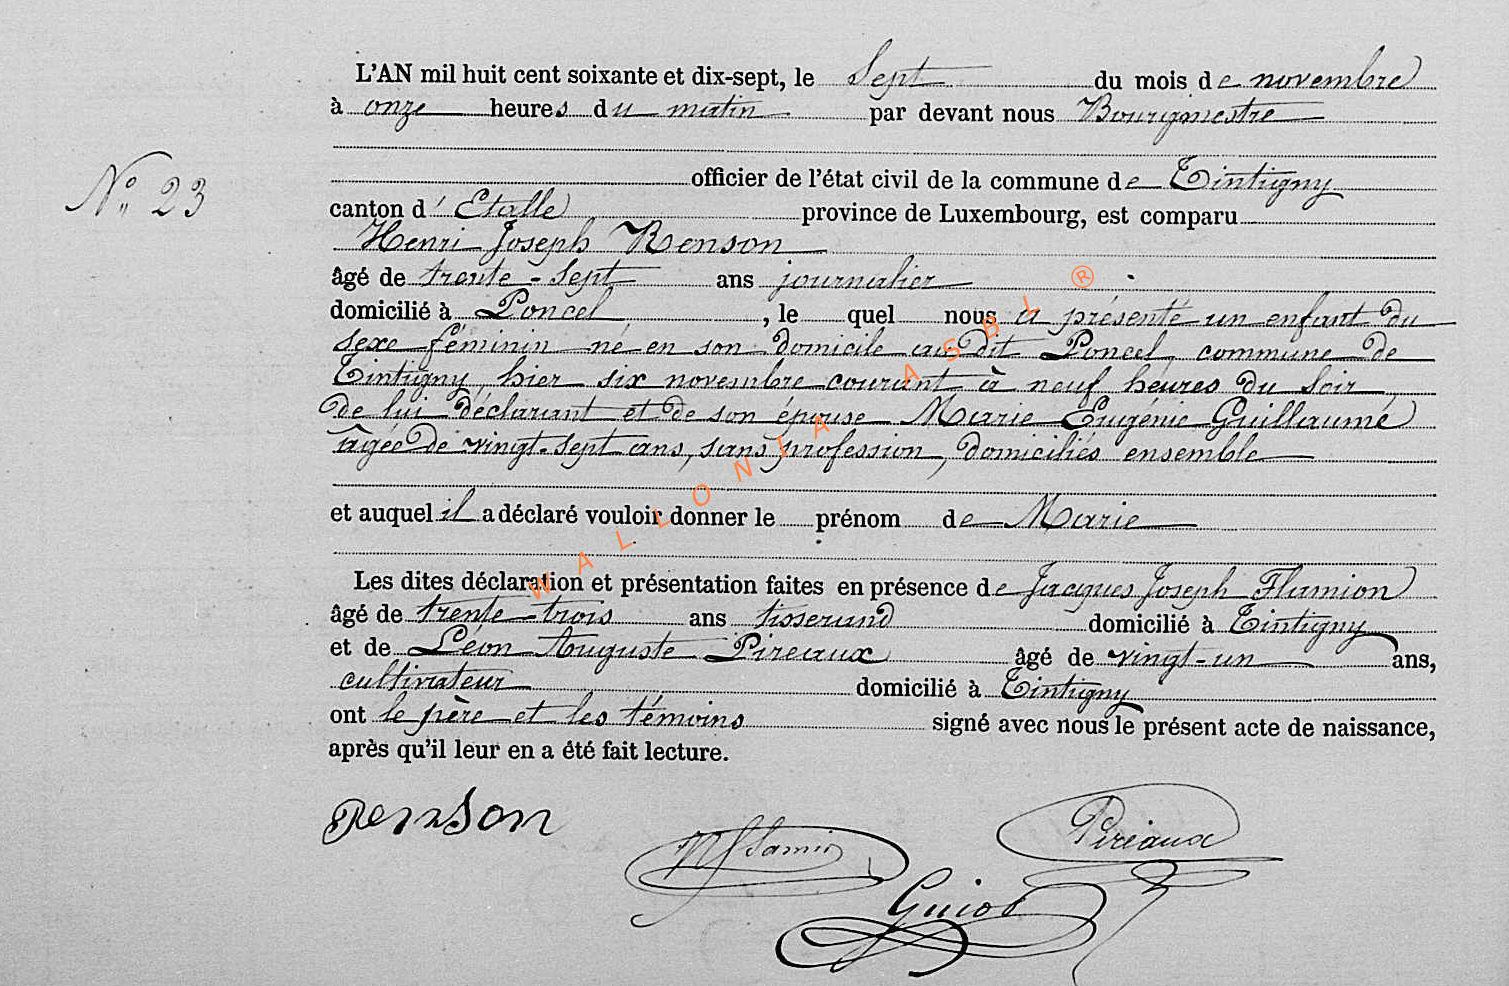 L'AN mil huit cent soixante et dix-sept, le Sept du mois de novembre
à onze heures du matin par devant nous Bourgmestre
officier de l'état civil de la commune de Tintigny
N° 23
canton d' Etalle province de Luxembourg, est comparu
Henri Joseph Renson
âgé de trente-sept ans journalier
domicilié à Poncel, le quel nous a présenté un enfant du
sexe féminin né en son domicile au dit Poncel commune de
Tintigny, hier six novembre courant à neuf heures du soir
de lui déclarant et de son épouse Marie Eugénie Guillaumé
âgée de vingt-sept ans, sans profession, domiciliés ensemble
et auquel il a déclaré vouloir donner le prénom de Marie
Les dites déclaration et présentation faites en présence de Jacques Joseph Flamion
âgé de trente-trois ans tisserand domicilié à Tintigny
et de Léon Auguste Pireaux âgé de vingt-un ans,
cultivateur domicilié à Tintigny
ont le père et les témoins signé avec nous le présent acte de naissance,
après qu'il leur en a été fait lecture.
Renson
Pireaux
Guiot
WALLONIA ASBL ®